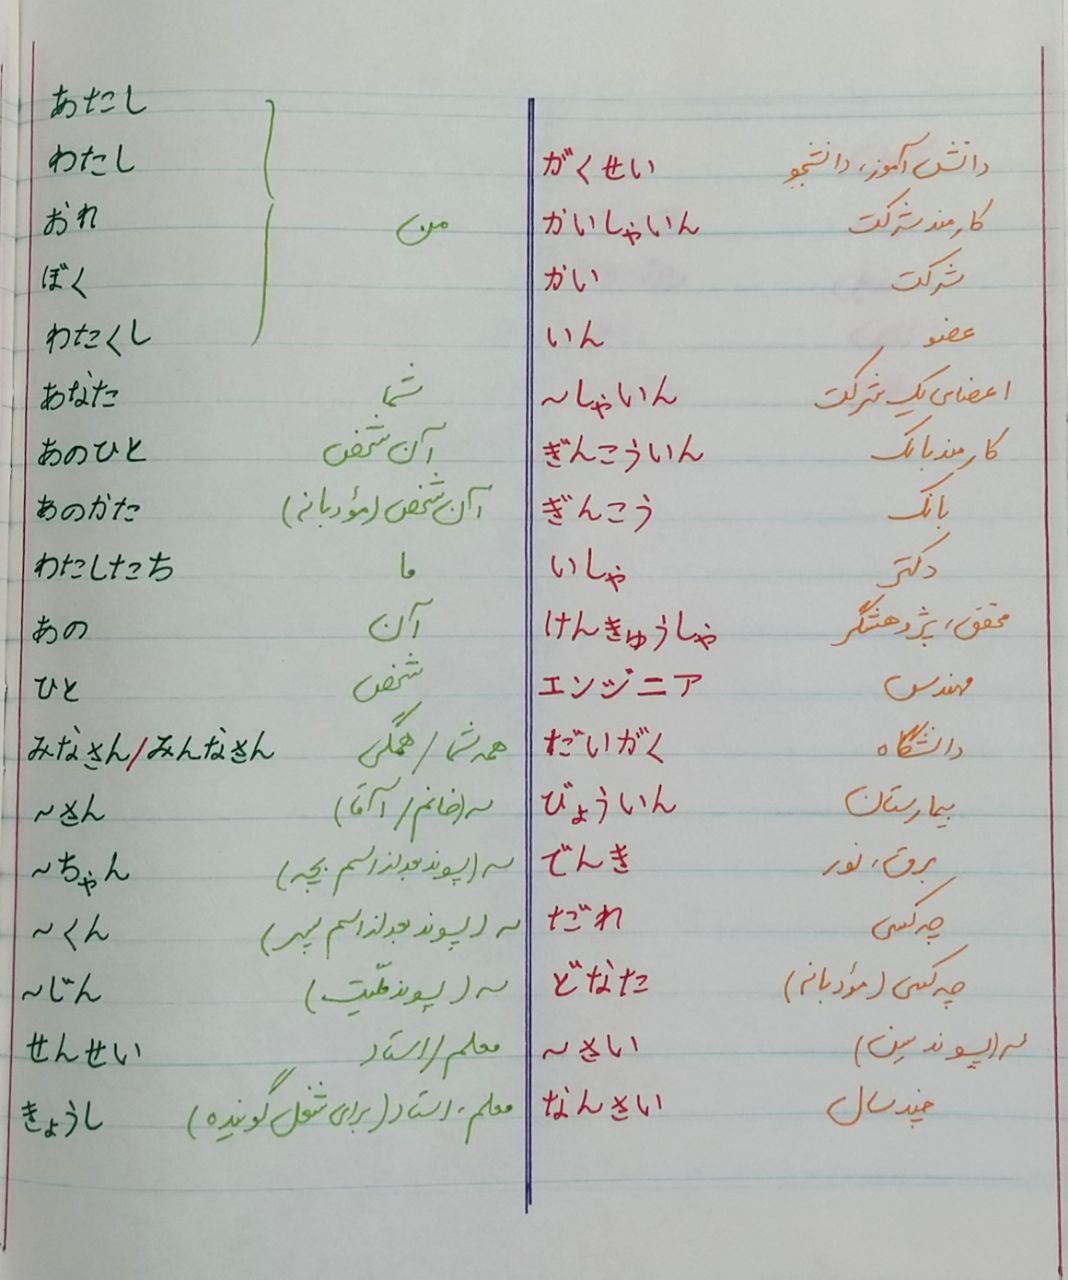 あたし
わたし
おれ من
ぼく
わたくし
あなた شما
あのひと آن شخص
あのかた آن شخص (مؤدبانه)
わたしたち ما
あの آن
ひと شخص
みなさん/みんなさん همه شما / همگی
~さん ~(خانم / آقا)
~ちゃん ~(پسوند بعد از اسم بچه)
~くん ~(پسوند بعد از اسم پسر)
~じん ~(پسوند ملّیت)
せんせい معلم/استاد
きょうし معلم، استاد (برای شغل گوینده)
がくせい دانش آموز، دانشجو
かいしゃいん کارمند شرکت
かい شرکت
いん عضو
~しゃいん اعضای یک شرکت
ぎんこういん کارمند بانک
ぎんこう بانک
いしゃ دکتر
けんきゅうしゃ محقق، پژوهشگر
エンジニア مهندس
だいがく دانشگاه
びょういん بیمارستان
でんき برق، نور
だれ چه کسی
どなた چه کسی (مؤدبانه)
~さい ~(پسوند سن)
なんさい چند سال